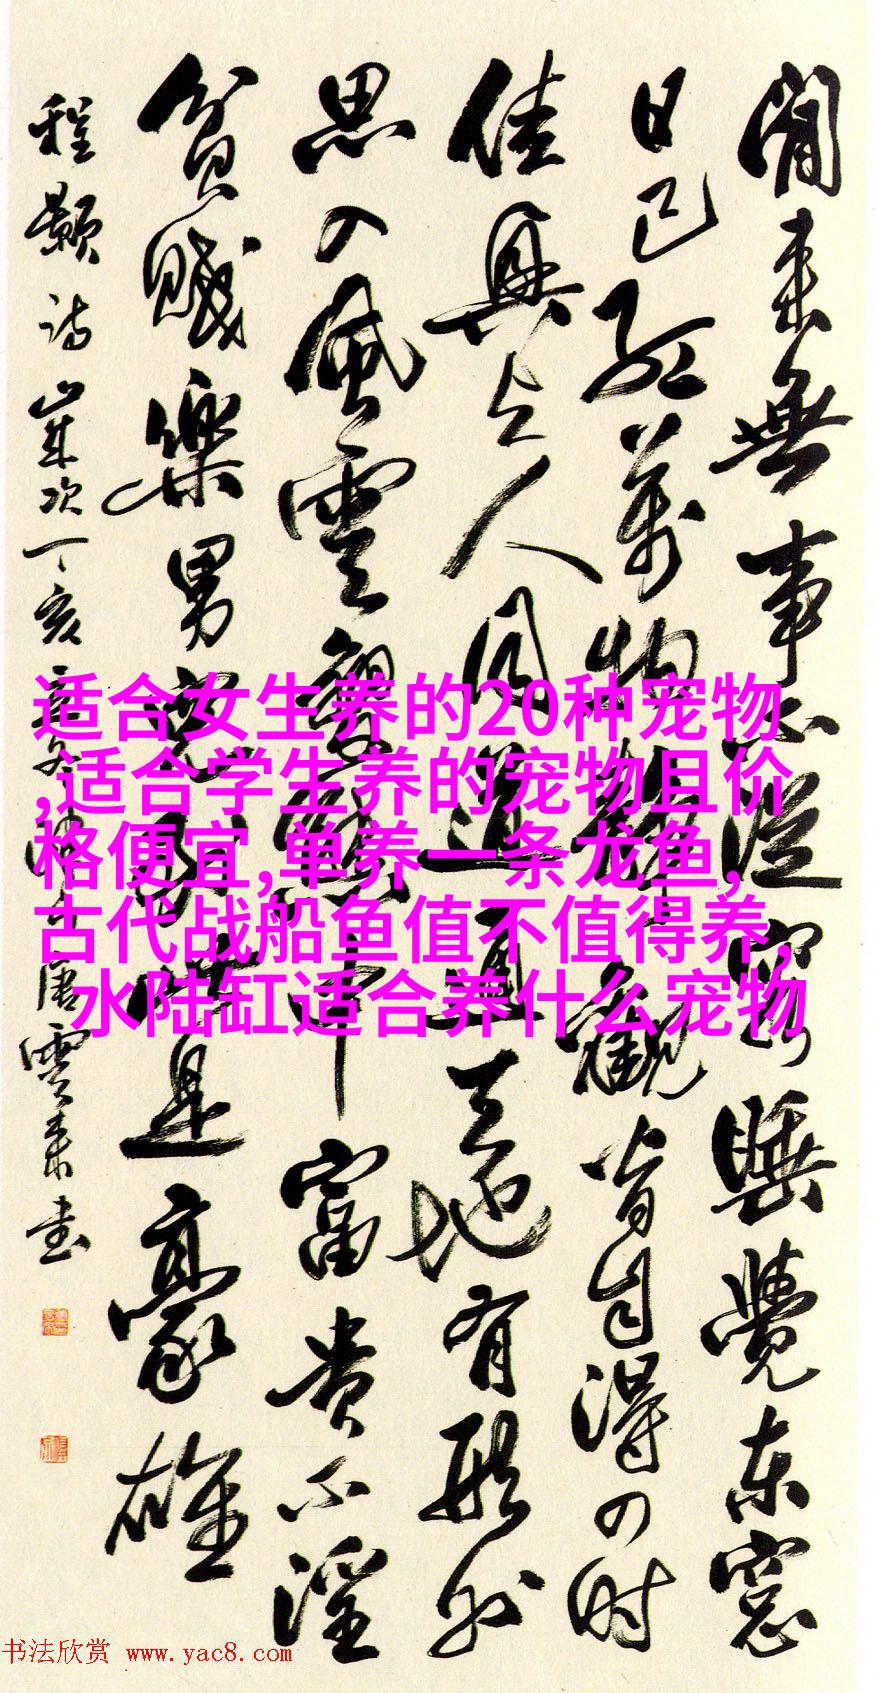 閒来無事不從容睡覺东窓
日已红萬物静觀皆自得四时
佳興与人同道通天地有形外
思入風雲變態中富貴不淫
貧賤樂男兒到此是豪雄
程颢诗歲次丁亥唐雲来书
适合女生养的20种宠物
,适合学生养的宠物且价
格便宜,单养一条龙鱼,
古代战船鱼值不值得养,
水陆缸适合养什么宠物
书法欣赏 www.yac8.com